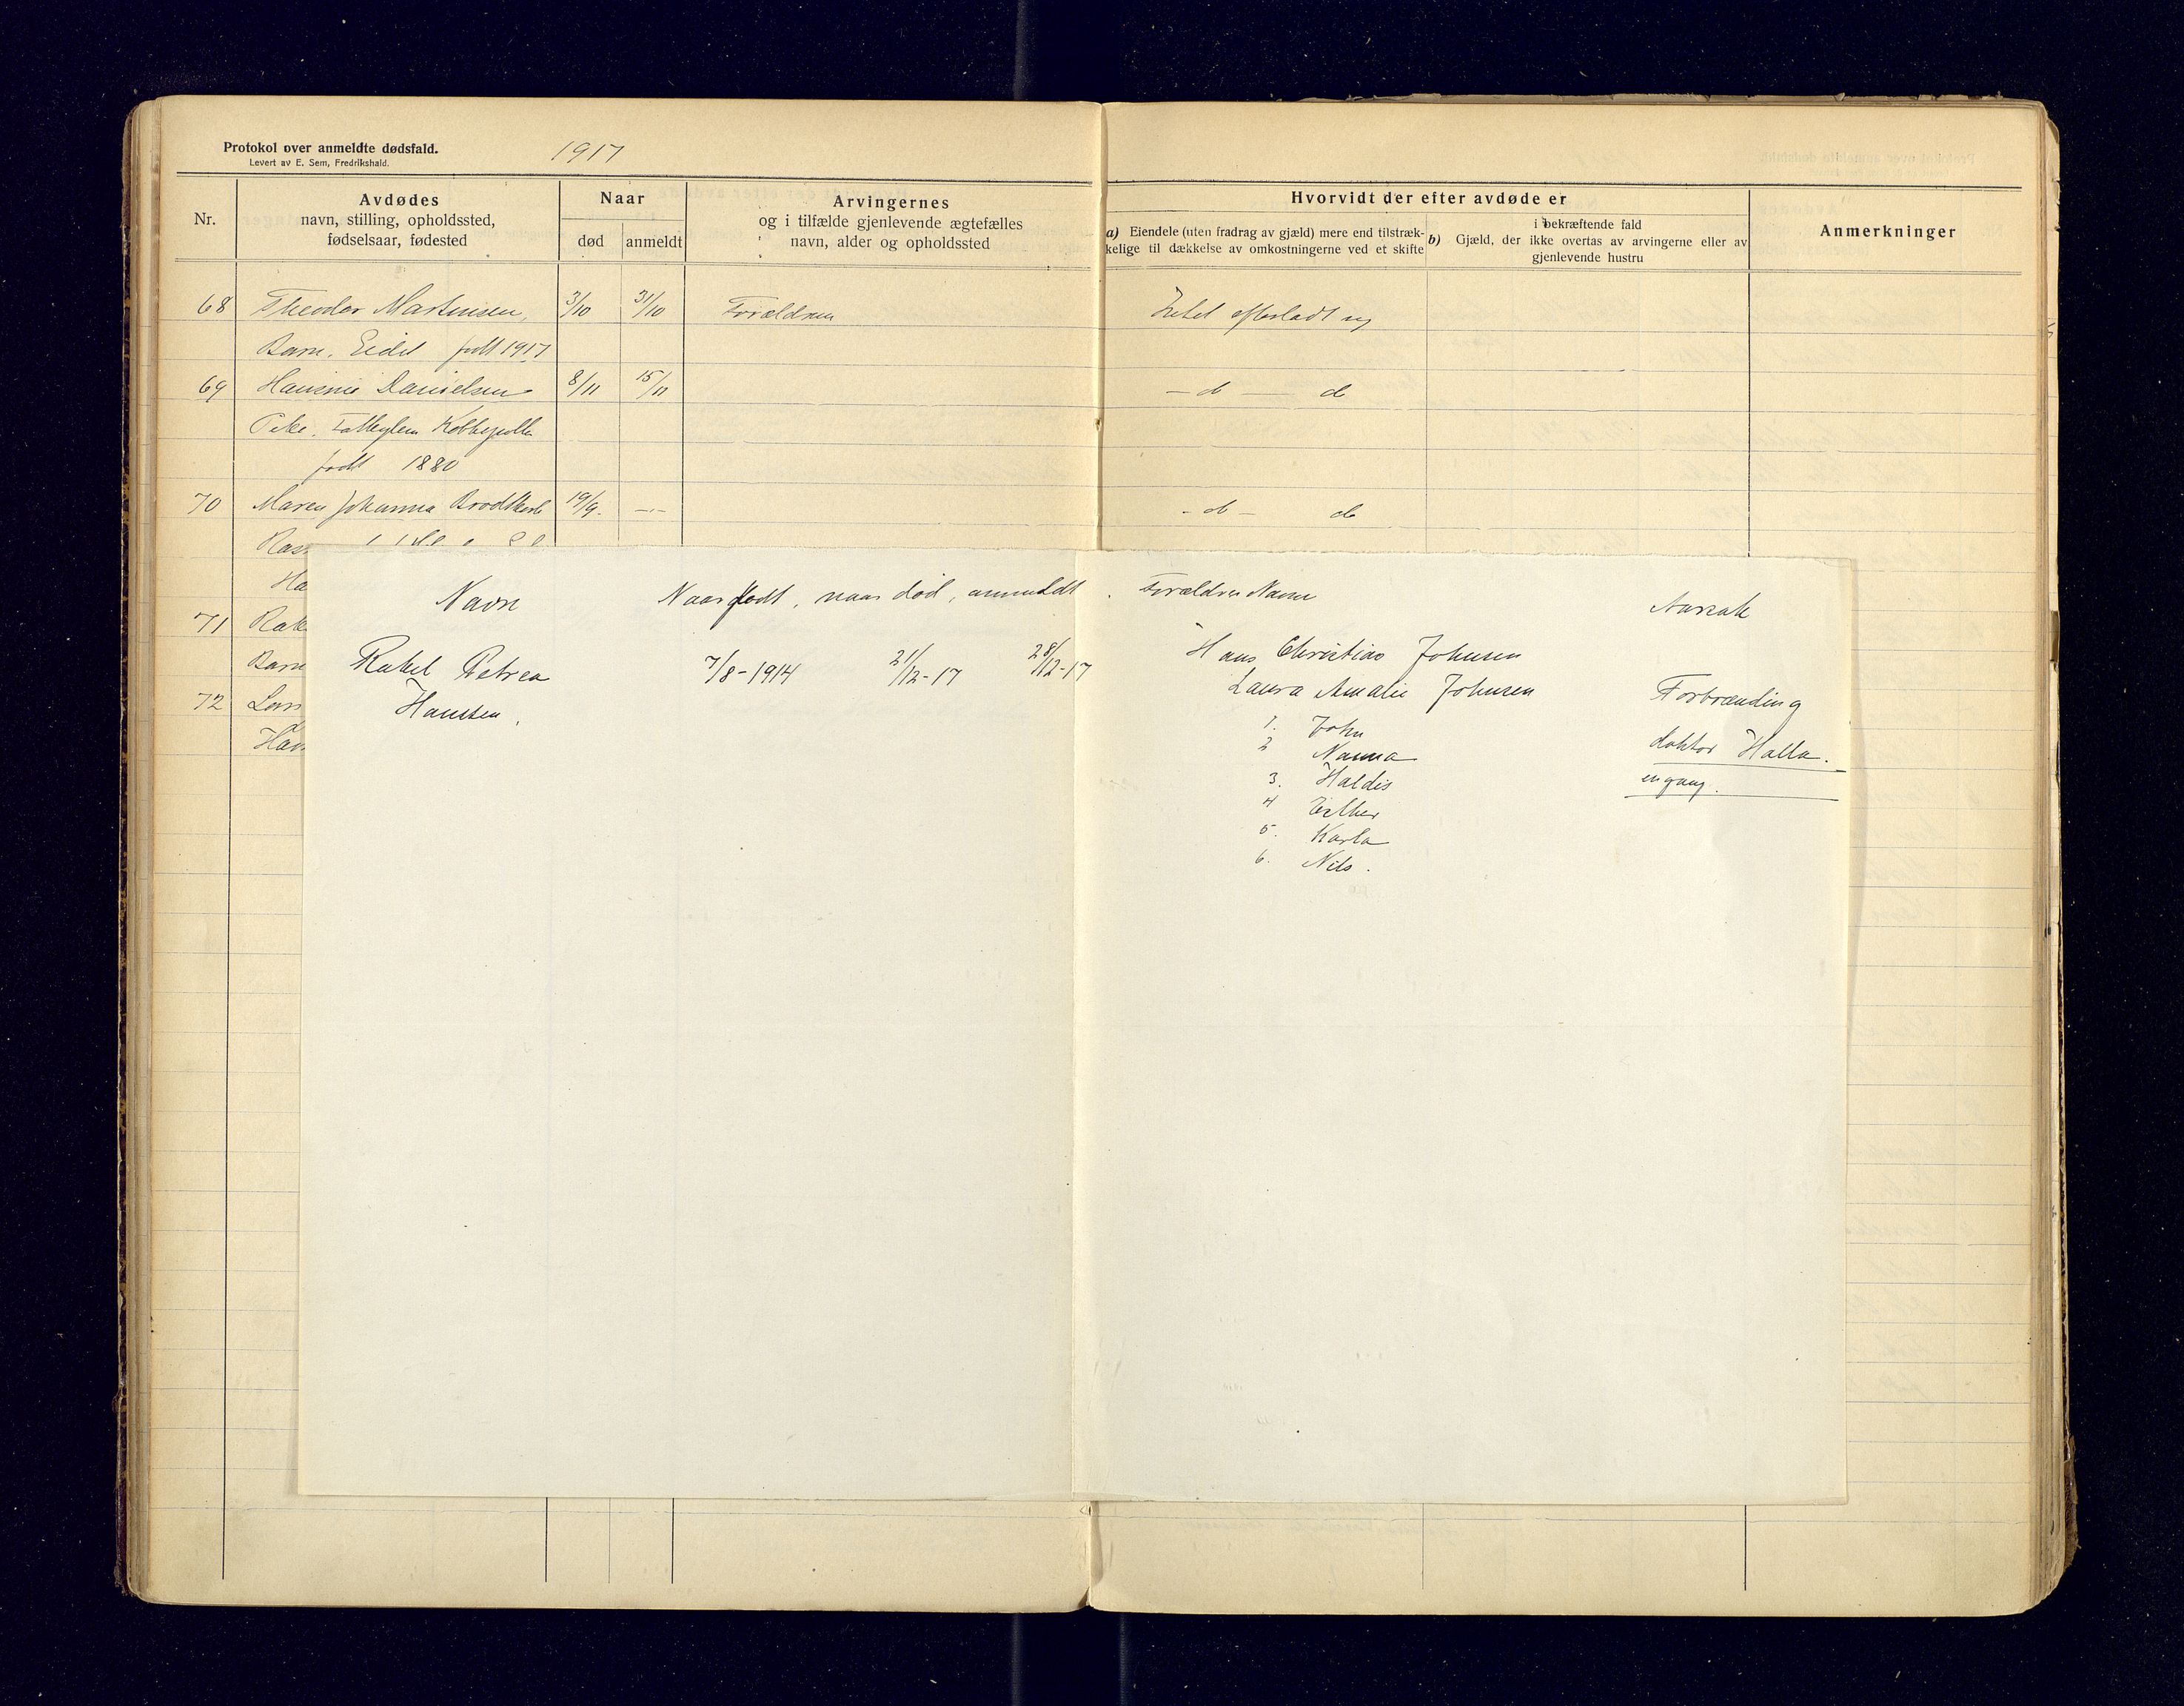 Protokol over anmeldte dødsfald.
Levert av E. Sem, Fredrikshald.
1917
Nr.
Avdødes
navn, stilling, opholdssted,
fødselsaar, fødested
Naar
død
anmeldt
Arvingernes
og i tilfælde gjenlevende ægtefælles
navn, alder og opholdssted
Hvorvidt der efter avdøde er
a) Eiendele (uten fradrag av gjæld) mere end tilstræk-
kelige til dækkelse av omkostningerne ved et skifte
i bekræftende fald
b) Gjæld, der ikke overtas av arvingerne eller av
gjenlevende hustru
Anmerkninger
68 Theodor Martinsen, 3/10 31/10 Forældrene Intet efterladt sig
Barn. Eidet født 1917
69 Danielsen 8/11 15/11 - do - do
Pike.
født 1880
70 Maren Johanna Brodtkorb 19/9. -"- - do - do
Ha
71 Rak
Barn
72 Lars
Han
Navn Naar født, naar død, anmeldt. Forældres Navne Aarsak
Rakel Petrea 7/8-1914 21/12-17 28/12-17 Hans Christian Johnsen
Hansen. Laura Amalie Johnsen Forbrænding
1. John
2 Nanna doktor Halla.
3. Haldis engang.
4 Esther
5. Karla
6. Nils.